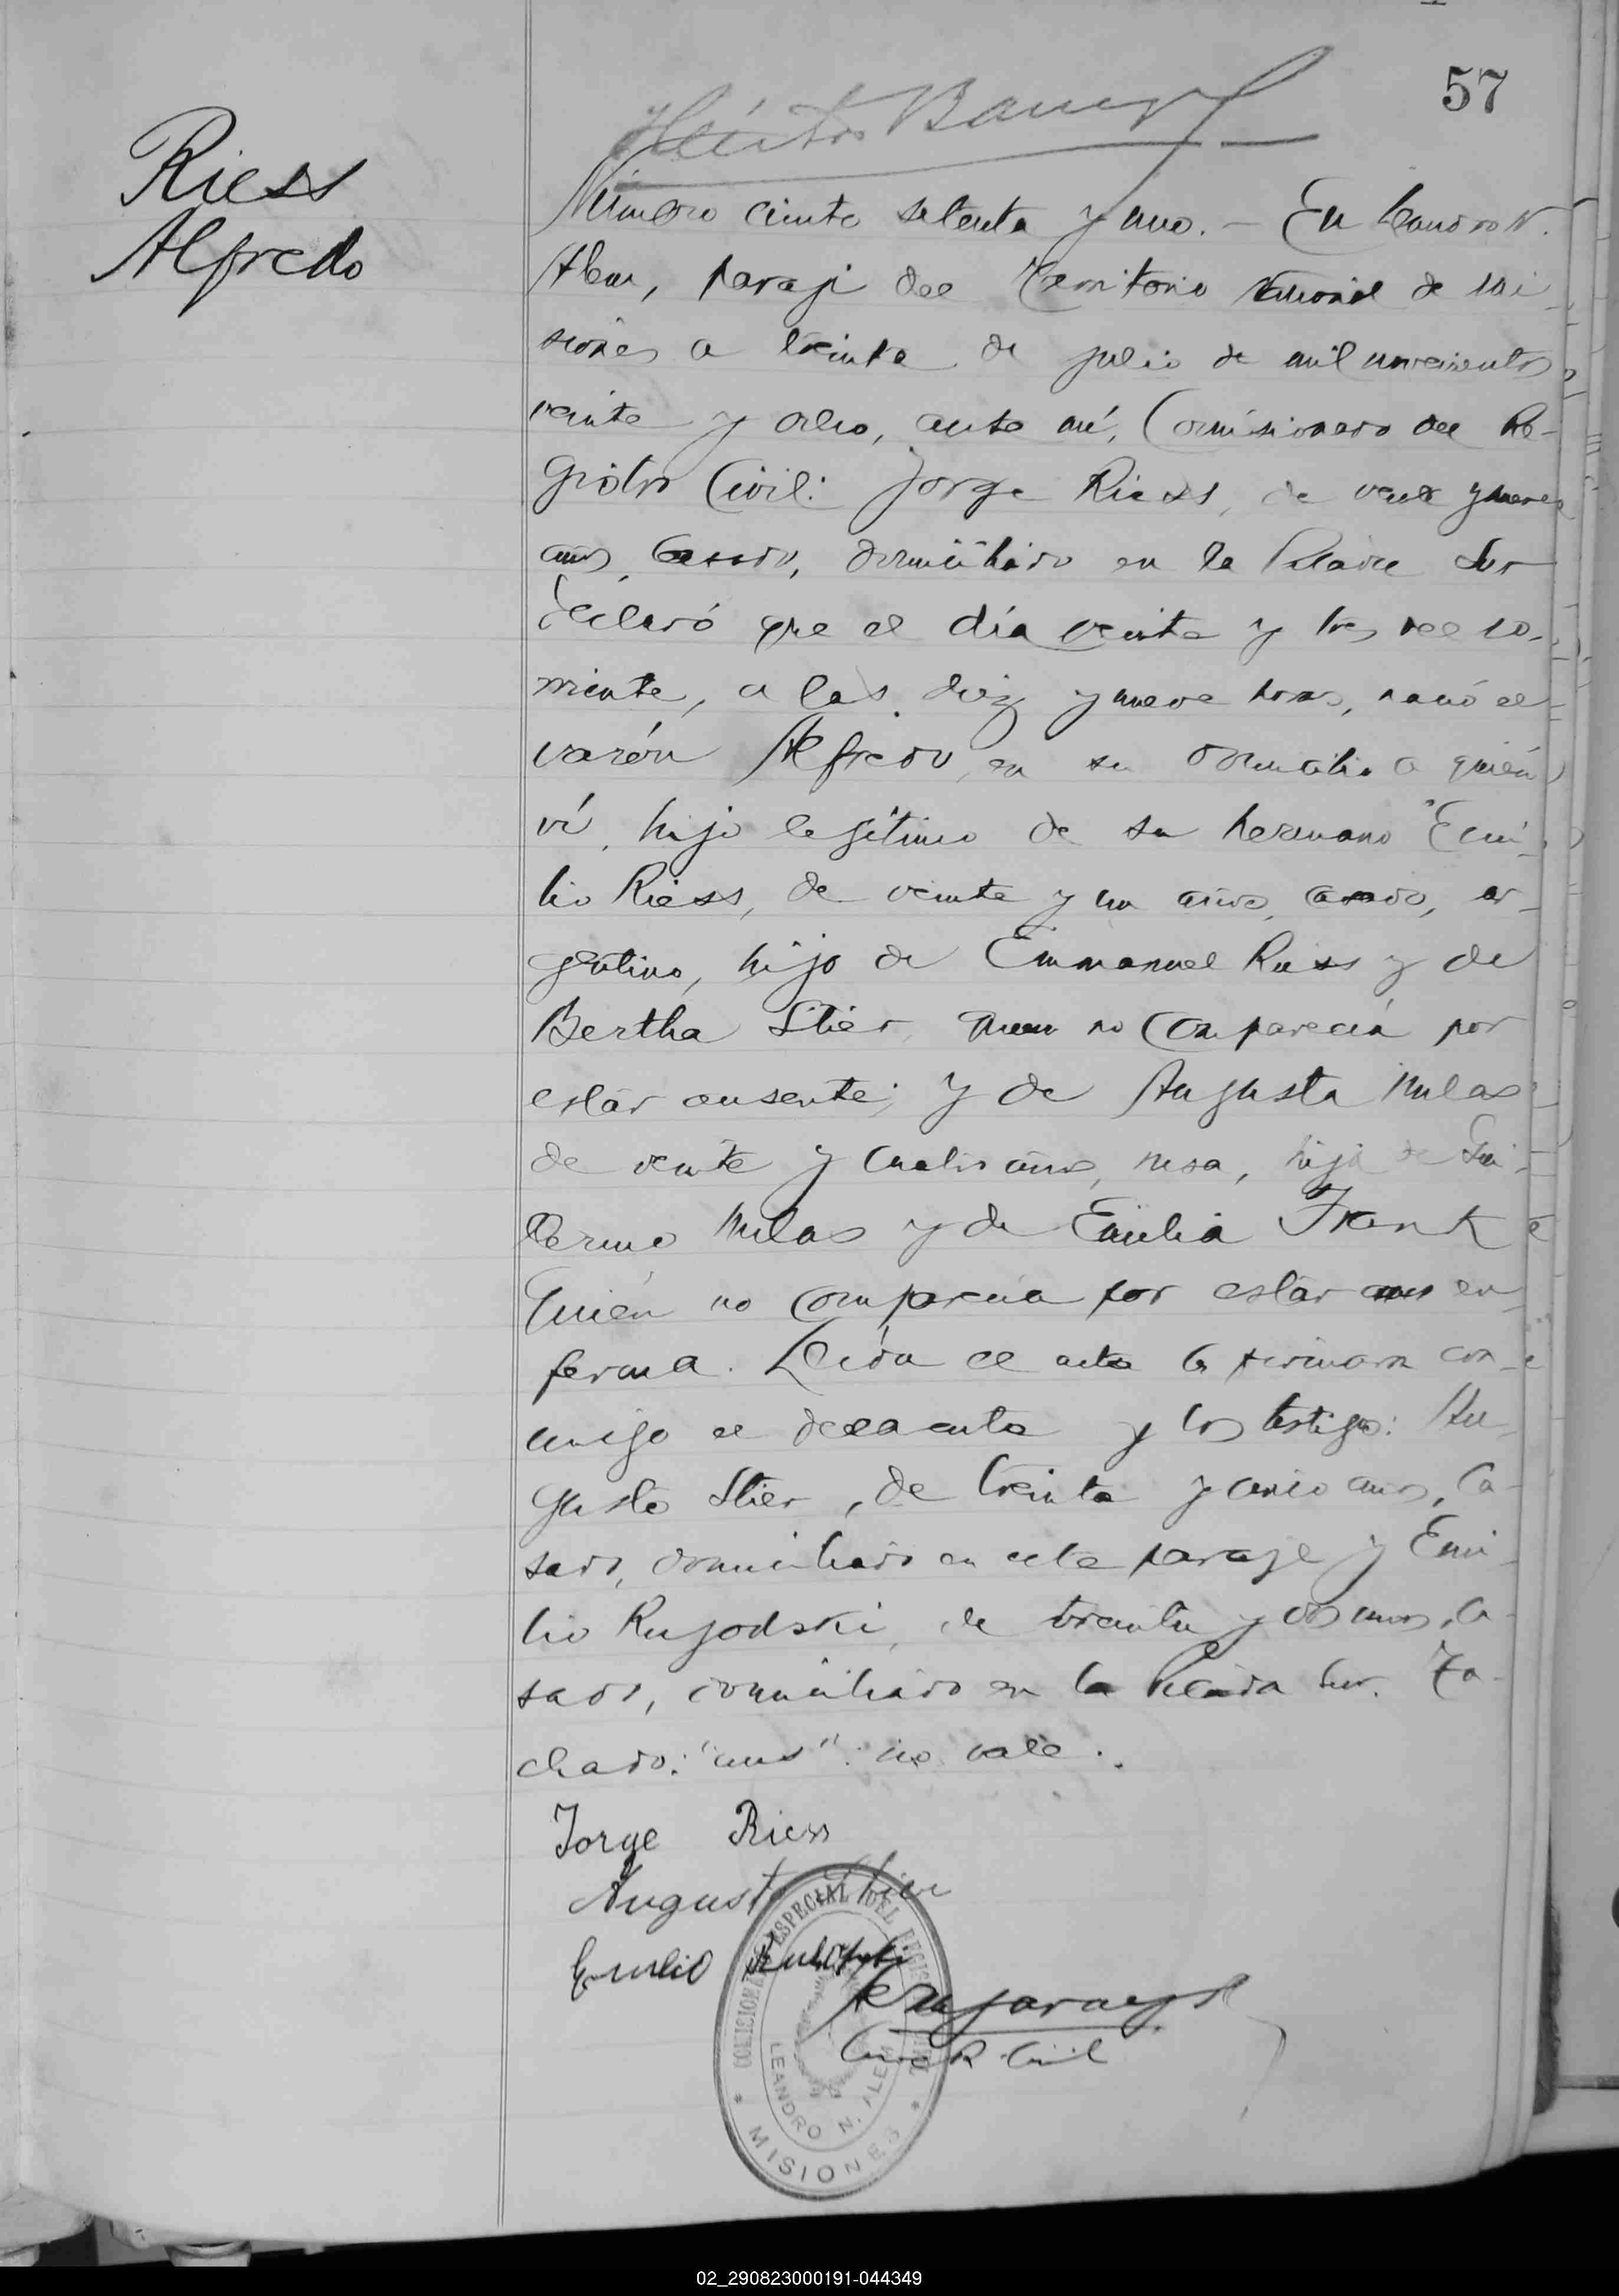 57
Riess
Alfredo
Número ciento setenta y uno. — En Leandro N.
Alem, paraje del Territorio Nacional de Mi-
siones a treinta de julio de mil novecientos
veinte y ocho, ante mí, Comisionado del Re-
gistro Civil: Jorge Riess, de veinte y nueve
años, casado, domiciliado en la Picada Sur
declaró que el día veinte y tres del co-
rriente, a las diez y nueve horas, nació el
varón Alfredo, en su domicilio a quién
ví, hijo legítimo de su hermano Emi-
lio Riess, de veinte y un años, casado, ar-
gentino, hijo de Emmanuel Riess y de
Bertha Stier, quien no comparecía por
estár ausente; y de Augusta Milas
de veinte y cuatro años, rusa, hija de Gui-
llermo Milas y de Emilia Frank
quién no comparecía por estár aus en-
ferma. Leída el acta la firmaron con-
migo el declarante y los testigos: Au-
gusto Stier, de treinta y cinco años, ca-
sado, domiciliado en este paraje y Emi-
lio Rugodski, de treinta y dos años, ca-
sado, domiciliado en la Picada Sur. Ta-
chado: "aus": no vale.
Jorge Riess
Augusto Stier
Emilio
R. Civil
COMISIONADO ESPECIAL DEL REGISTRO CIVIL
LEANDRO N. ALEM
* MISIONES *
02_290823000191-044349